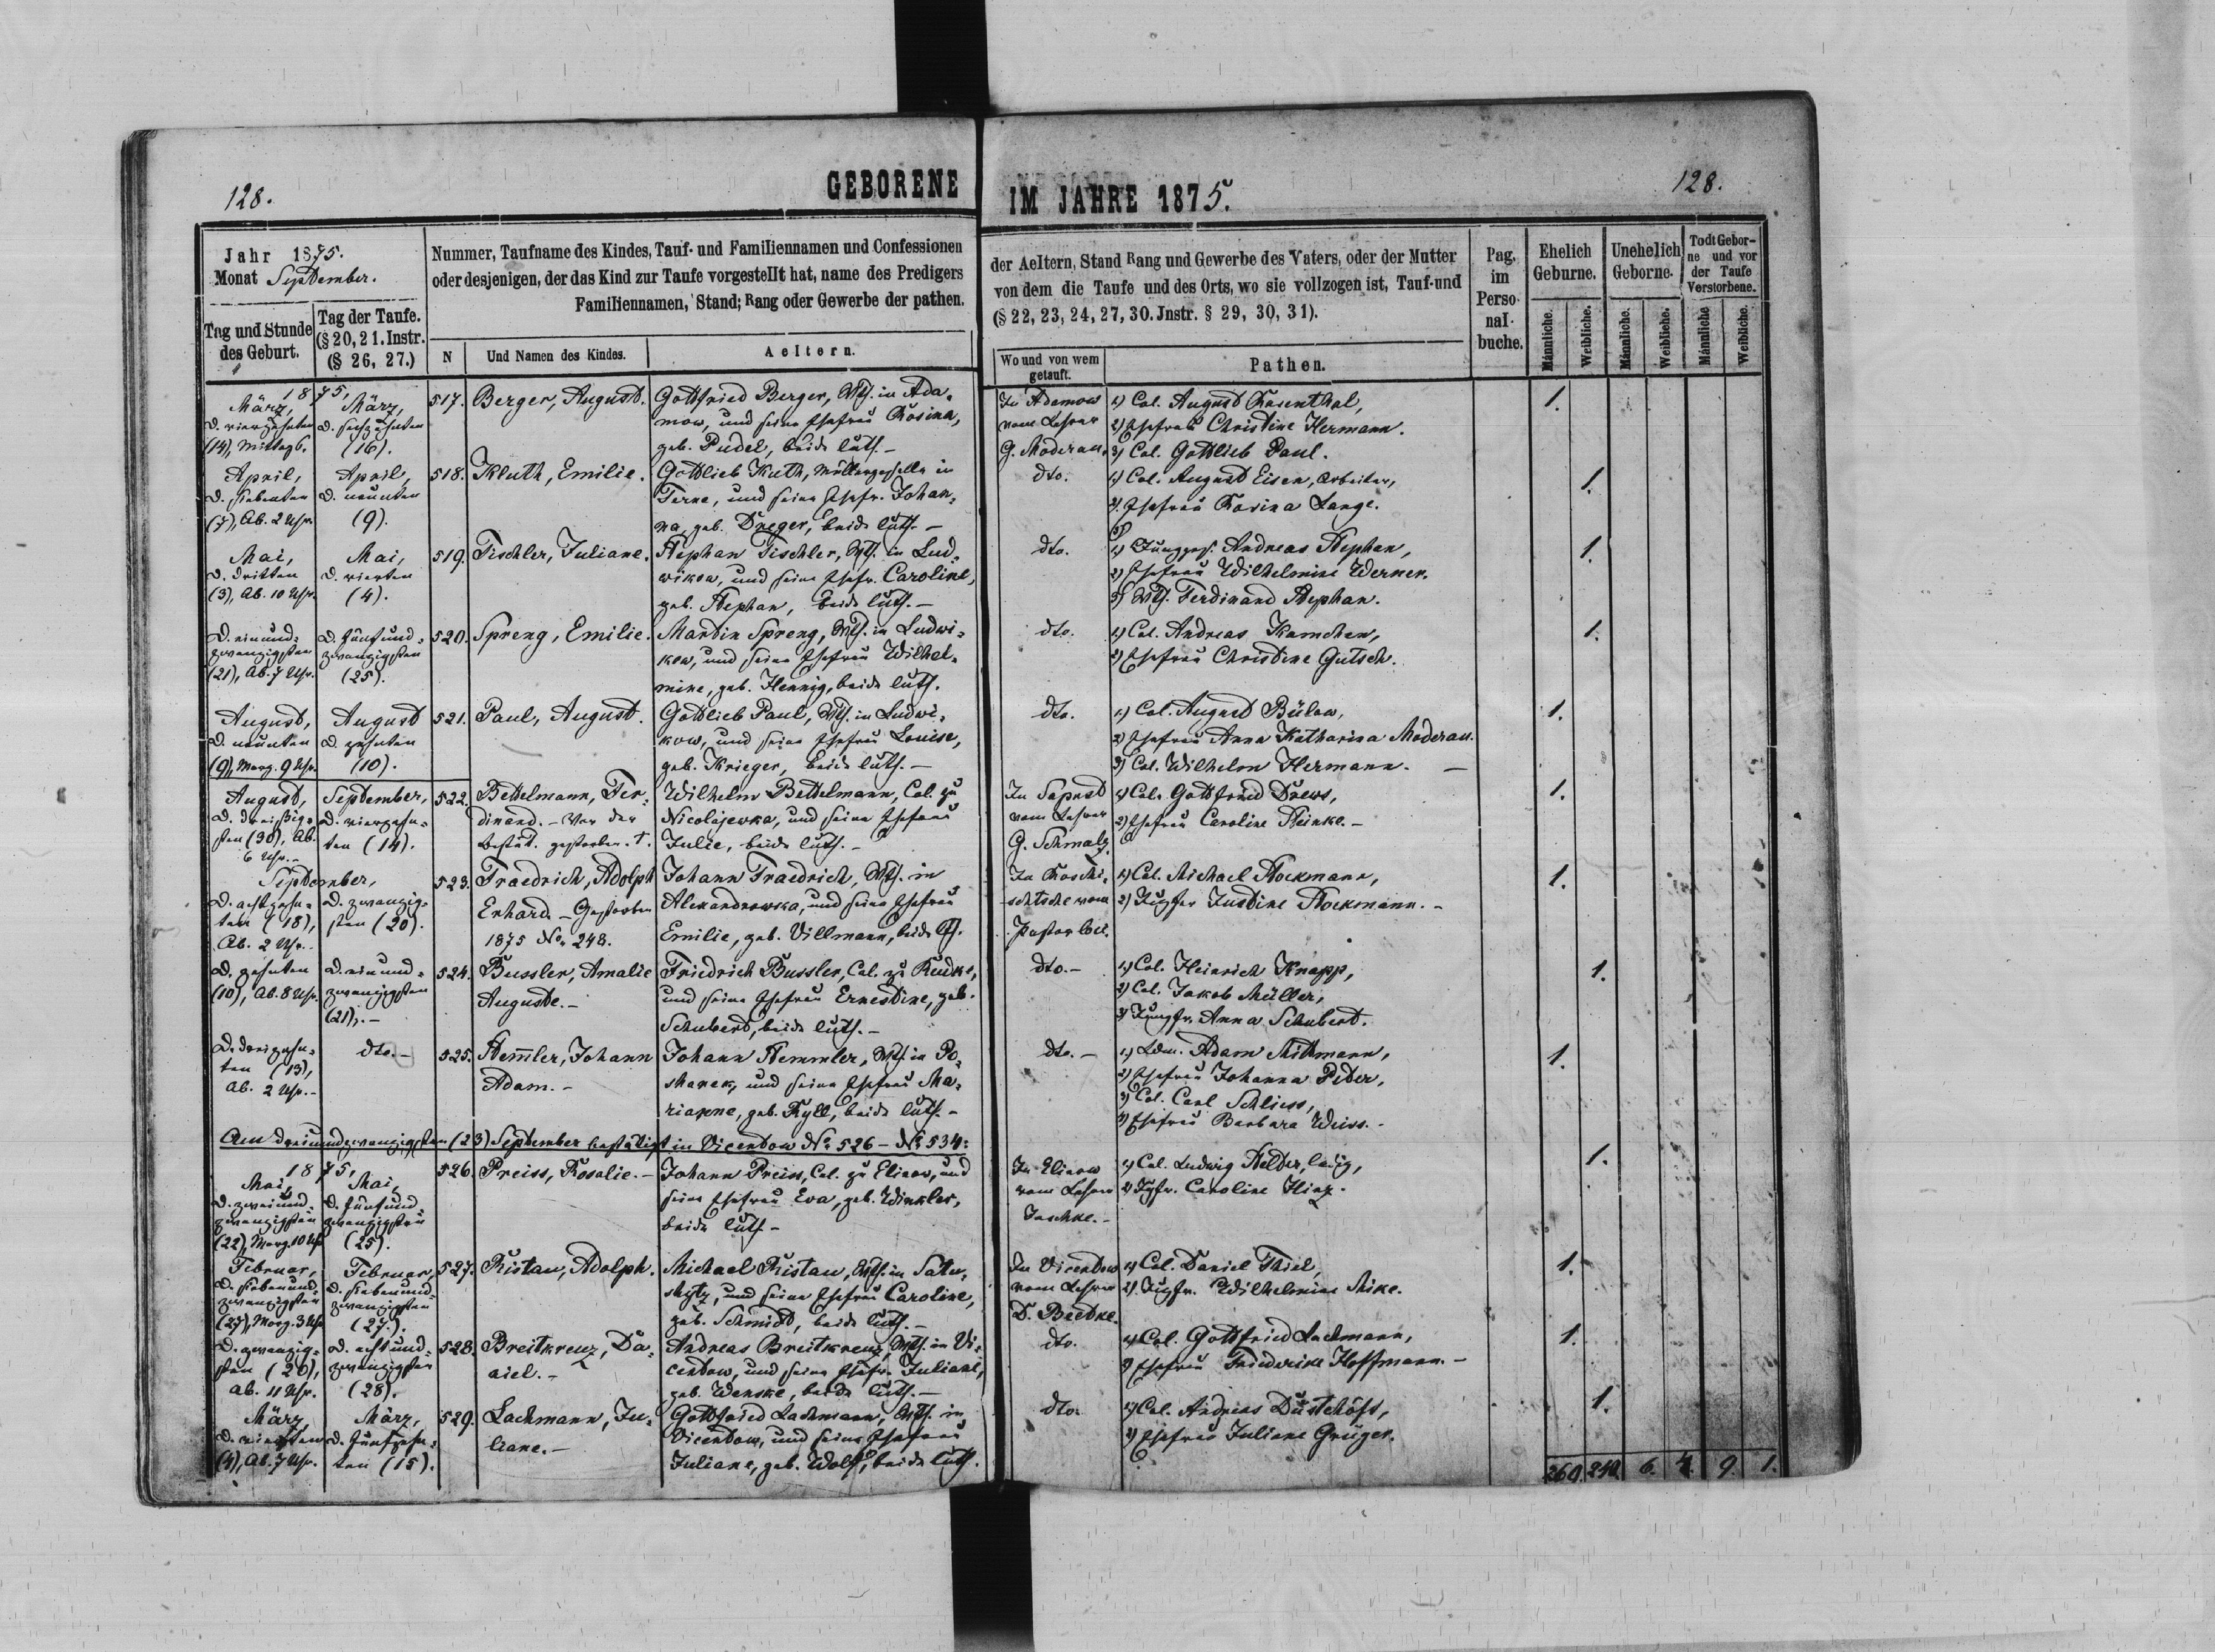 128.
GEBORENE
IM JAHRE 1875.
128.
Jahr 1875.
Monat September.
Tag und Stunde
des Geburt.
Tag der Taufe.
(§ 20, 21. Instr.
(§ 26, 27.)
Nummer, Taufname des Kindes, Tauf- und Familiennamen und Confessionen
oder desjenigen, der das Kind zur Taufe vorgestellt hat, name des Predigers
Familiennamen, Stand; Rang oder Gewerbe der pathen.
N
Und Namen des Kindes.
Aeltern.
der Aeltern, Stand Rang und Gewerbe des Vaters, oder der Mutter
von dem die Taufe und des Orts, wo sie vollzogen ist, Tauf-und
(§ 22, 23, 24, 27, 30. Jnstr. § 29, 30, 31).
Wo und von wem
getauft.
Pathen.
Pag.
im
Perso-
nal-
buche.
Ehelich
Geburne.
Unehelich
Geborne.
Todt Gebor-
ne und vor
der Taufe
Verstorbene.
Männliche.
Weibliche.
Männliche.
Weibliche.
Männliche
Weibliche.
1875,
März,
d. vierzehnten
(14), Mittags.
März,
d. sechzehnten
(16).
517.
Berger, August.
Gottfried Berger, Wth. in Ada-
mow, und seine Ehefrau Rosina,
geb. Pudel, beide luth. -
In Adamow
vom Lehrer
G. Moderau.
1) Col. August Rosenthal,
2) Ehefrau Christine Hermann.
3) Col. Gottlieb Paul.
1.
April,
d. siebenten
(7), Ab. 2 Uhr.
April,
d. neunten
(9).
518.
Kluth, Emilie.
Gottlieb Kluth, Müllergeselle in
Terne, und seine Ehefr. Johan-
na, geb. Dreger, beide luth. -
dto.
1) Col. August Eisen, Arbeiter,
2. Ehefrau Rosina Lange.
1.
Mai,
d. dritten
(3), Ab. 10 Uhr.
Mai,
d. vierten
(4).
519.
Tischler, Juliane.
Stephan Tischler, Wth. in Lud-
wikow, und seine Ehefr. Caroline,
geb. Stephan, beide luth. -
dto.
1) Jungges. Andreas Stephan,
2) Ehefrau Wilhelmine Werner.
3) Wth. Ferdinand Stephan.
1.
D. einund-
zwanzigsten
(21), Ab. 7 Uhr.
D. fünfund-
zwanzigsten
(25).
520.
Spreng, Emilie.
Martin Spreng, Wth. in Ludwi-
kow, und seine Ehefrau Wilhel-
mine, geb. Hennig, beide luth.
dto.
1) Col. Andreas Kamchen,
2) Ehefrau Christine Gutsch.
1.
August,
d. neunten
(9), Morg. 9 Uhr.
August
d. zehnten
(10).
521.
Paul, August.
Gottlieb Paul, Wth. in Ludwi-
kow, und seine Ehefrau Louise,
geb. Krieger, beide luth. -
dto.
1) Col. August Bülow,
2) Ehefrau Anna Katharina Moderau.
3) Col. Wilhelm Hermann. -
1.
August,
d. dreißig-
sten (30), Ab.
6 Uhr. -
September,
d. vierzehn-
ten (14).
522.
Bettelmann, Fer-
dinand. - Vor der
bestät. gestorben. †.
Wilhelm Bettelmann, Col. zu
Nicolajewka, und seine Ehefrau
Julie, beide luth. -
In Sapust
vom Lehrer
G. Schmalz.
1) Col. Gottfried Drews,
2) Ehefrau Caroline Steinke. -
1.
September,
d. achtzehn-
ten (18),
Ab. 2 Uhr. -
d. zwanzig-
sten (20).
523.
Fraedrich, Adolph
Erhard. - Gestorben
1875 No. 248.
Johann Fraedrich, Wth. in
Alexandrowka, und seine Ehefrau
Emilie, geb. Villmann, beide lth.
In Roschi-
schtsche vom
Pastor loci.
1) Col. Michael Stockmann,
2) Jugfer Justine Stockmann. -
1.
D. zehnten
(10), Ab. 8 Uhr.
D. einund-
zwanzigsten
(21). -
524.
Bussler, Amalie
Auguste. -
Friedrich Bussler, Col. zu Rudke,
und seine Ehefrau Ernestine, geb.
Schubert, beide luth. -
dto. -
1) Col. Heinrich Knapp,
2) Col. Jakob Müller,
3) Jungfr. Anna Schubert.
1.
D. dreizehn-
ten (13),
Ab. 2 Uhr. -
dto. -
525.
Stemler, Johann
Adam. -
Johann Stemmler, Wth. in Po-
sharek, und seine Ehefrau Ma-
rianne, geb. Ryll, beide luth. -
dto. -
1) Ldm. Adam Mittmann,
2) Ehefrau Johanna Peter,
3) Col. Carl Schliess,
4) Ehefrau Barbara Weiss. -
1.
Am dreiundzwanzigsten (23) September bestätigt in Vicentow No. 526 - No. 534:
1875,
Mai,
d. zweiund-
zwanzigsten
(22), Morg. 10 Uhr
Mai,
d. fünfund-
zwanzigsten
(25).
526.
Preiss, Rosalie. -
Johann Preiss, Col. zu Elinow, und
seine Ehefrau Eva, geb. Winkler,
beide luth -
In Elinow
vom Lehrer
Jaschke. -
1) Col. Ludwig Stelter, ledig,
2) Jgfr. Caroline Hinz.
1.
Februar,
d. siebenund-
zwanzigsten
(27), Morg. 3 Uhr
Februar,
d. siebenund-
zwanzigsten
(27.).
527.
Ristau, Adolph.
Michael Ristau, Wth. in Satu-
shytz, und seine Ehefrau Caroline,
geb. Schmidt, beide luth. -
In Vicentow
vom Lehrer
D. Bredke.
1) Col. Daniel Thiel,
2) Jugfr. Wilhelmine Mike.
1.
D. zwanzig-
sten (20),
Ab. 11 Uhr.
d. achtund-
zwanzigsten
(28).
528.
Breitkreuz, Da-
niel. -
Andreas Breitkreuz, Wth. in Vi-
centow, und seine Ehefr. Juliane,
geb. Wenske, beide luth. -
dto.
1) Col. Gottfried Lachmann,
2) Ehefrau Friederike Hoffmann. -
1.
März,
d. vierten
(4), Ab. 7 Uhr.
März,
d. fünfzehn-
ten (15).
529.
Lachmann, Ju-
liane. -
Gottfried Lachmann, Wth. in
Vicentow, und seine Ehefrau
Juliane, geb. Wolff, beide luth.
dto.
1) Col. Andreas Düsterhöft,
2) Ehefrau Juliane Grüger.
1.
260. 240. 6. 4. 9. 1.